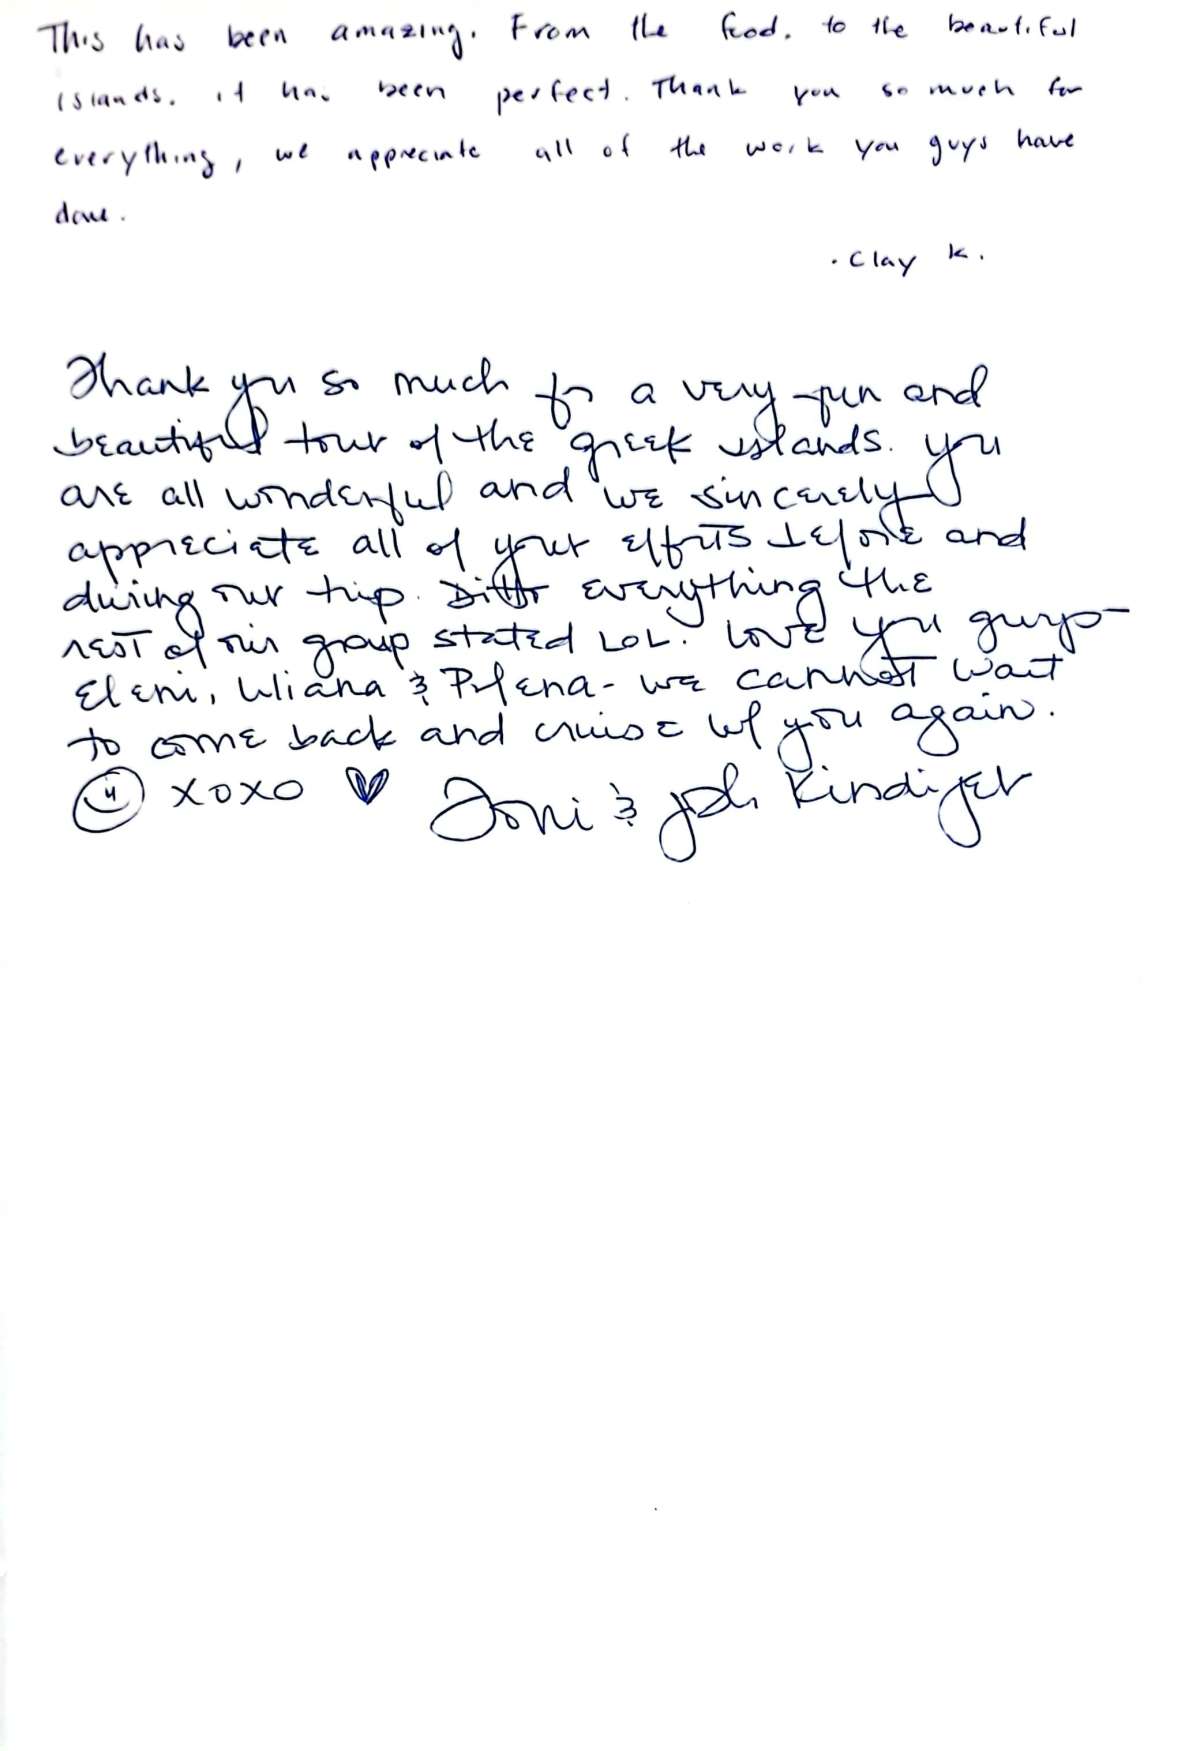 This has been amazing. From the food. to the beautiful
islands. it has been perfect. Thank you so much for
everything, we appreciate all of the work you guys have
done.
. Clay K.
Thank you so much for a very fun and
beautiful tour of the greek islands. you
are all wonderful and we sincerely
appreciate all of your efforts before and
during our trip. Ditto everything the
rest of our group stated LOL. Love you guys -
Eleni, Uliana & - we cannot wait
to come back and cruise w/ you again.
XOXO
Toni & Kindiger